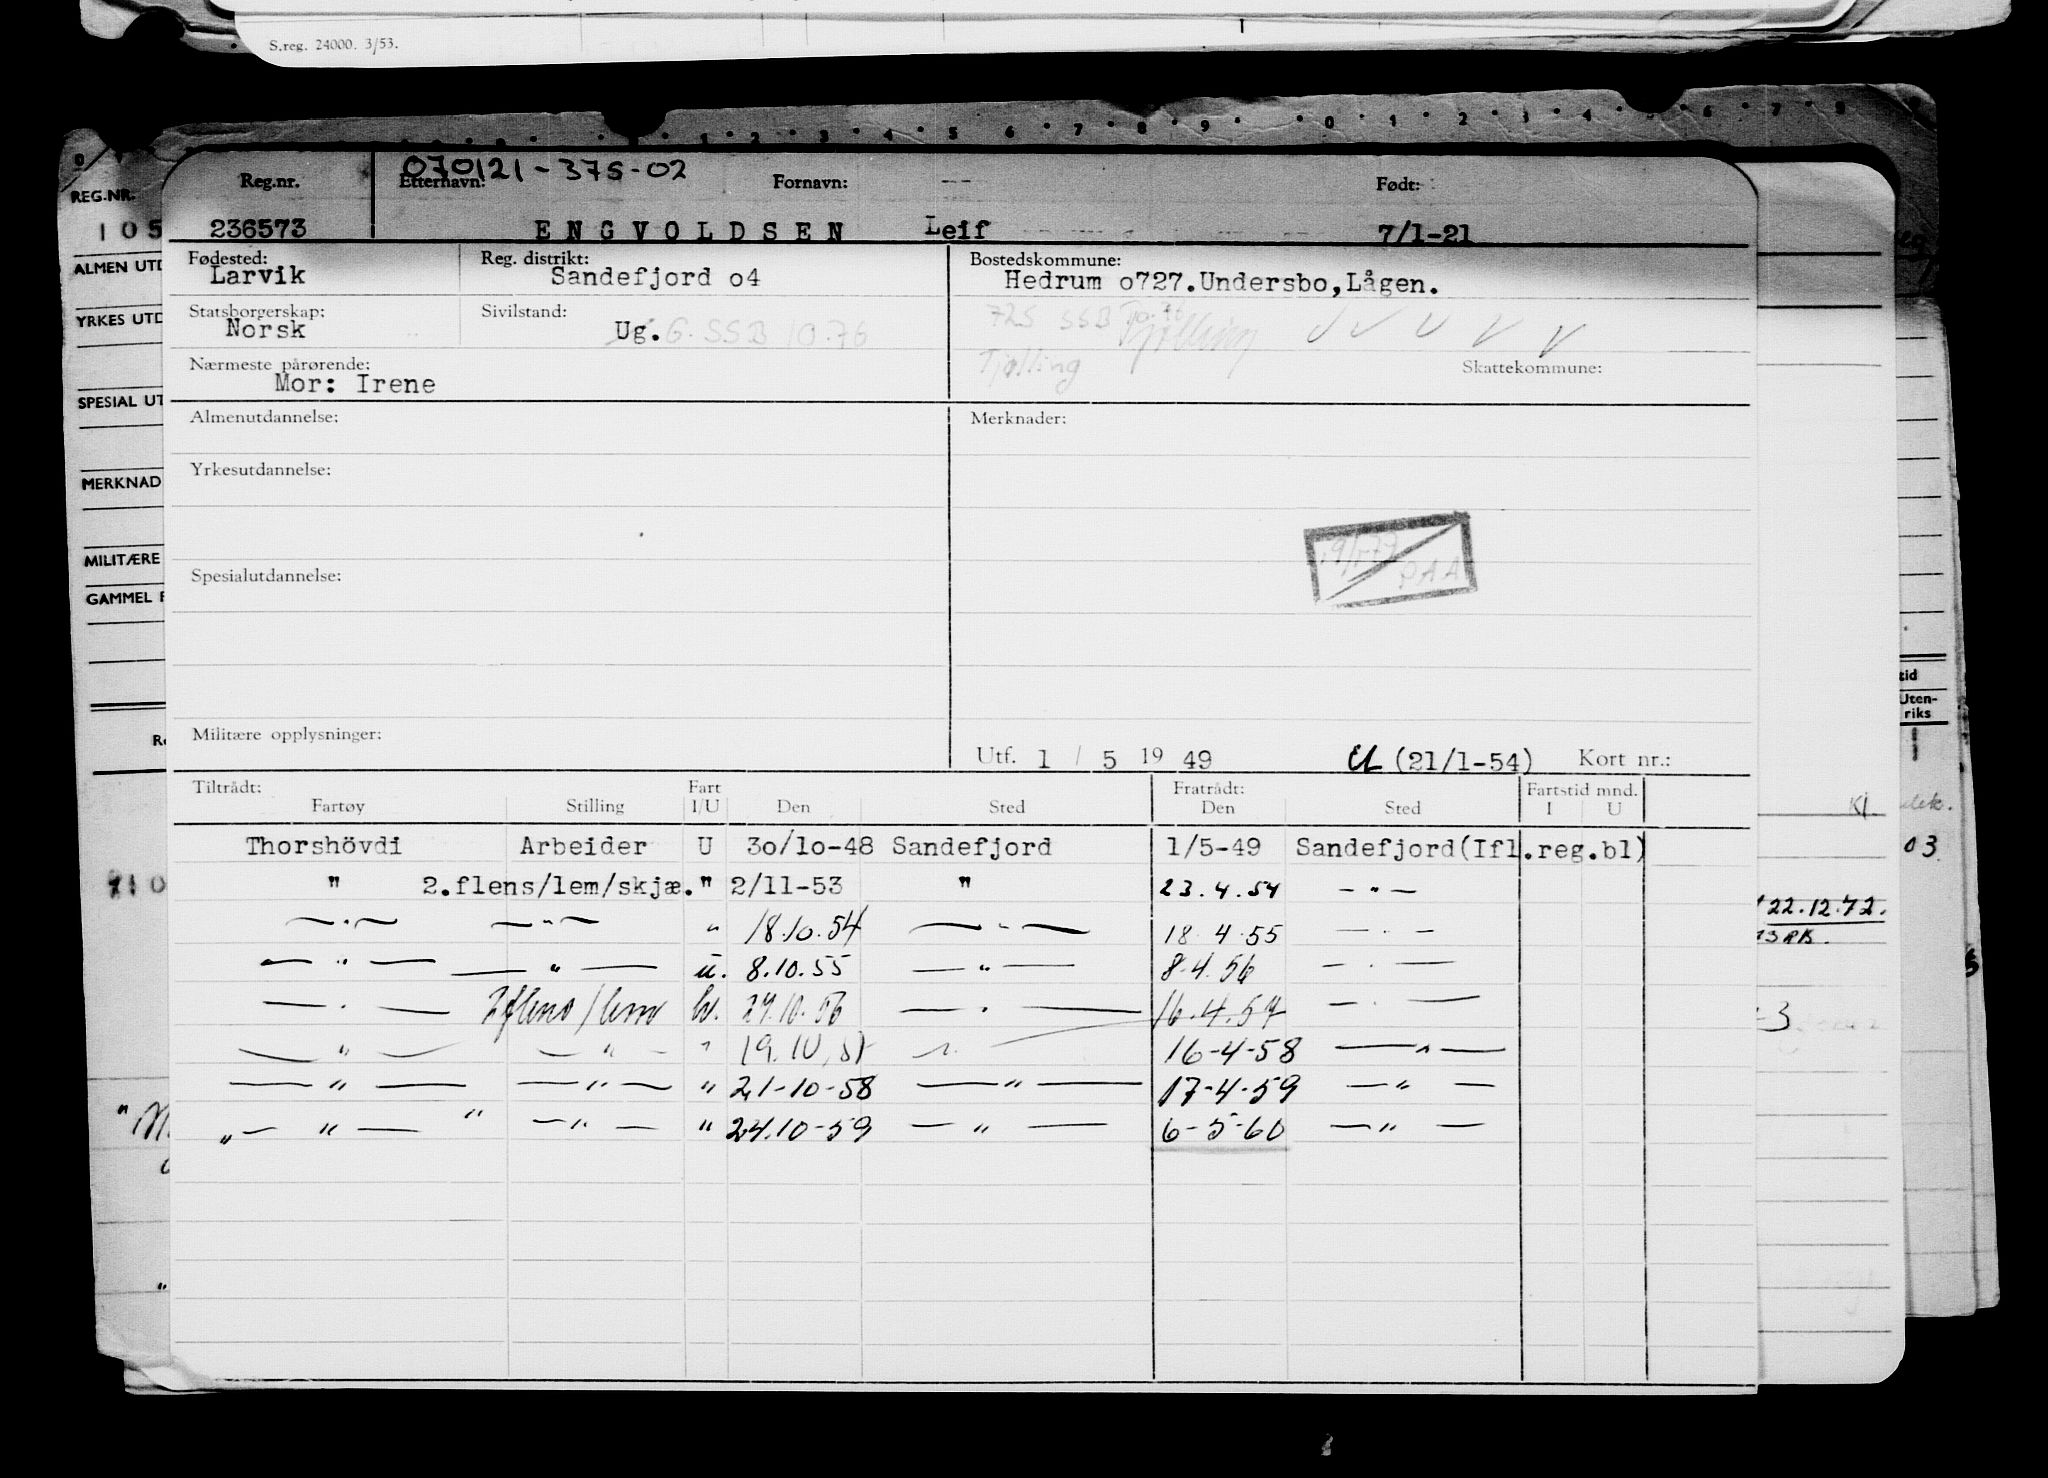 S.reg. 24000. 3/53.
REG.NR.
105
ALMEN UTD
YRKES UTD
SPESIAL UT
MERKNAD
MILITÆRE
GAMMEL F
070121-375-02
Reg.nr. Etternavn: Fornavn: Født:
236573 ENGVOLDSEN Leif 7/1-21
Fødested: Reg. distrikt: Bostedskommune:
Larvik Sandefjord o4 Hedrum o727.Undersbo,Lågen.
Statsborgerskap: Sivilstand: 725 SSB 10.76 Tjølling
Norsk Ug. G. SSB 10.76
Nærmeste pårørende: Tjølling Skattekommune:
Mor: Irene
Almenutdannelse: Merknader:
Yrkesutdannelse:
PAA
Spesialutdannelse:
Militære opplysninger:
Utf. 1 / 5 19 49 (21/1-54) Kort nr.:
Tiltrådt: Fart Fratrådt: Fartstid mnd.
Fartøy Stilling I/U Den Sted Den Sted I U
Thorshövdi Arbeider U 3o/1o-48 Sandefjord 1/5-49 Sandefjord(Ifl.reg.bl)
" 2.flens/lem/skjæ. " 2/11-53 " 23.4.54 — " —
— " — — " — " 18.10.54 — " — 18.4.55 — " —
— " — — " — u. 8.10.55 — " — 8.4.56 — " —
— " — 2 flens/lem 10.56 — " — 16.4.57 — " —
— " — — " — " 19.10.57 — " — 16-4-58 — " —
— " — — " — " 21-10-58 — " — 17-4-59 — " —
— " — " — " — " 24.10-59 — " — 6-5-60 — " —
tid
Uten-
riks
Kl.
03
22.12.72.